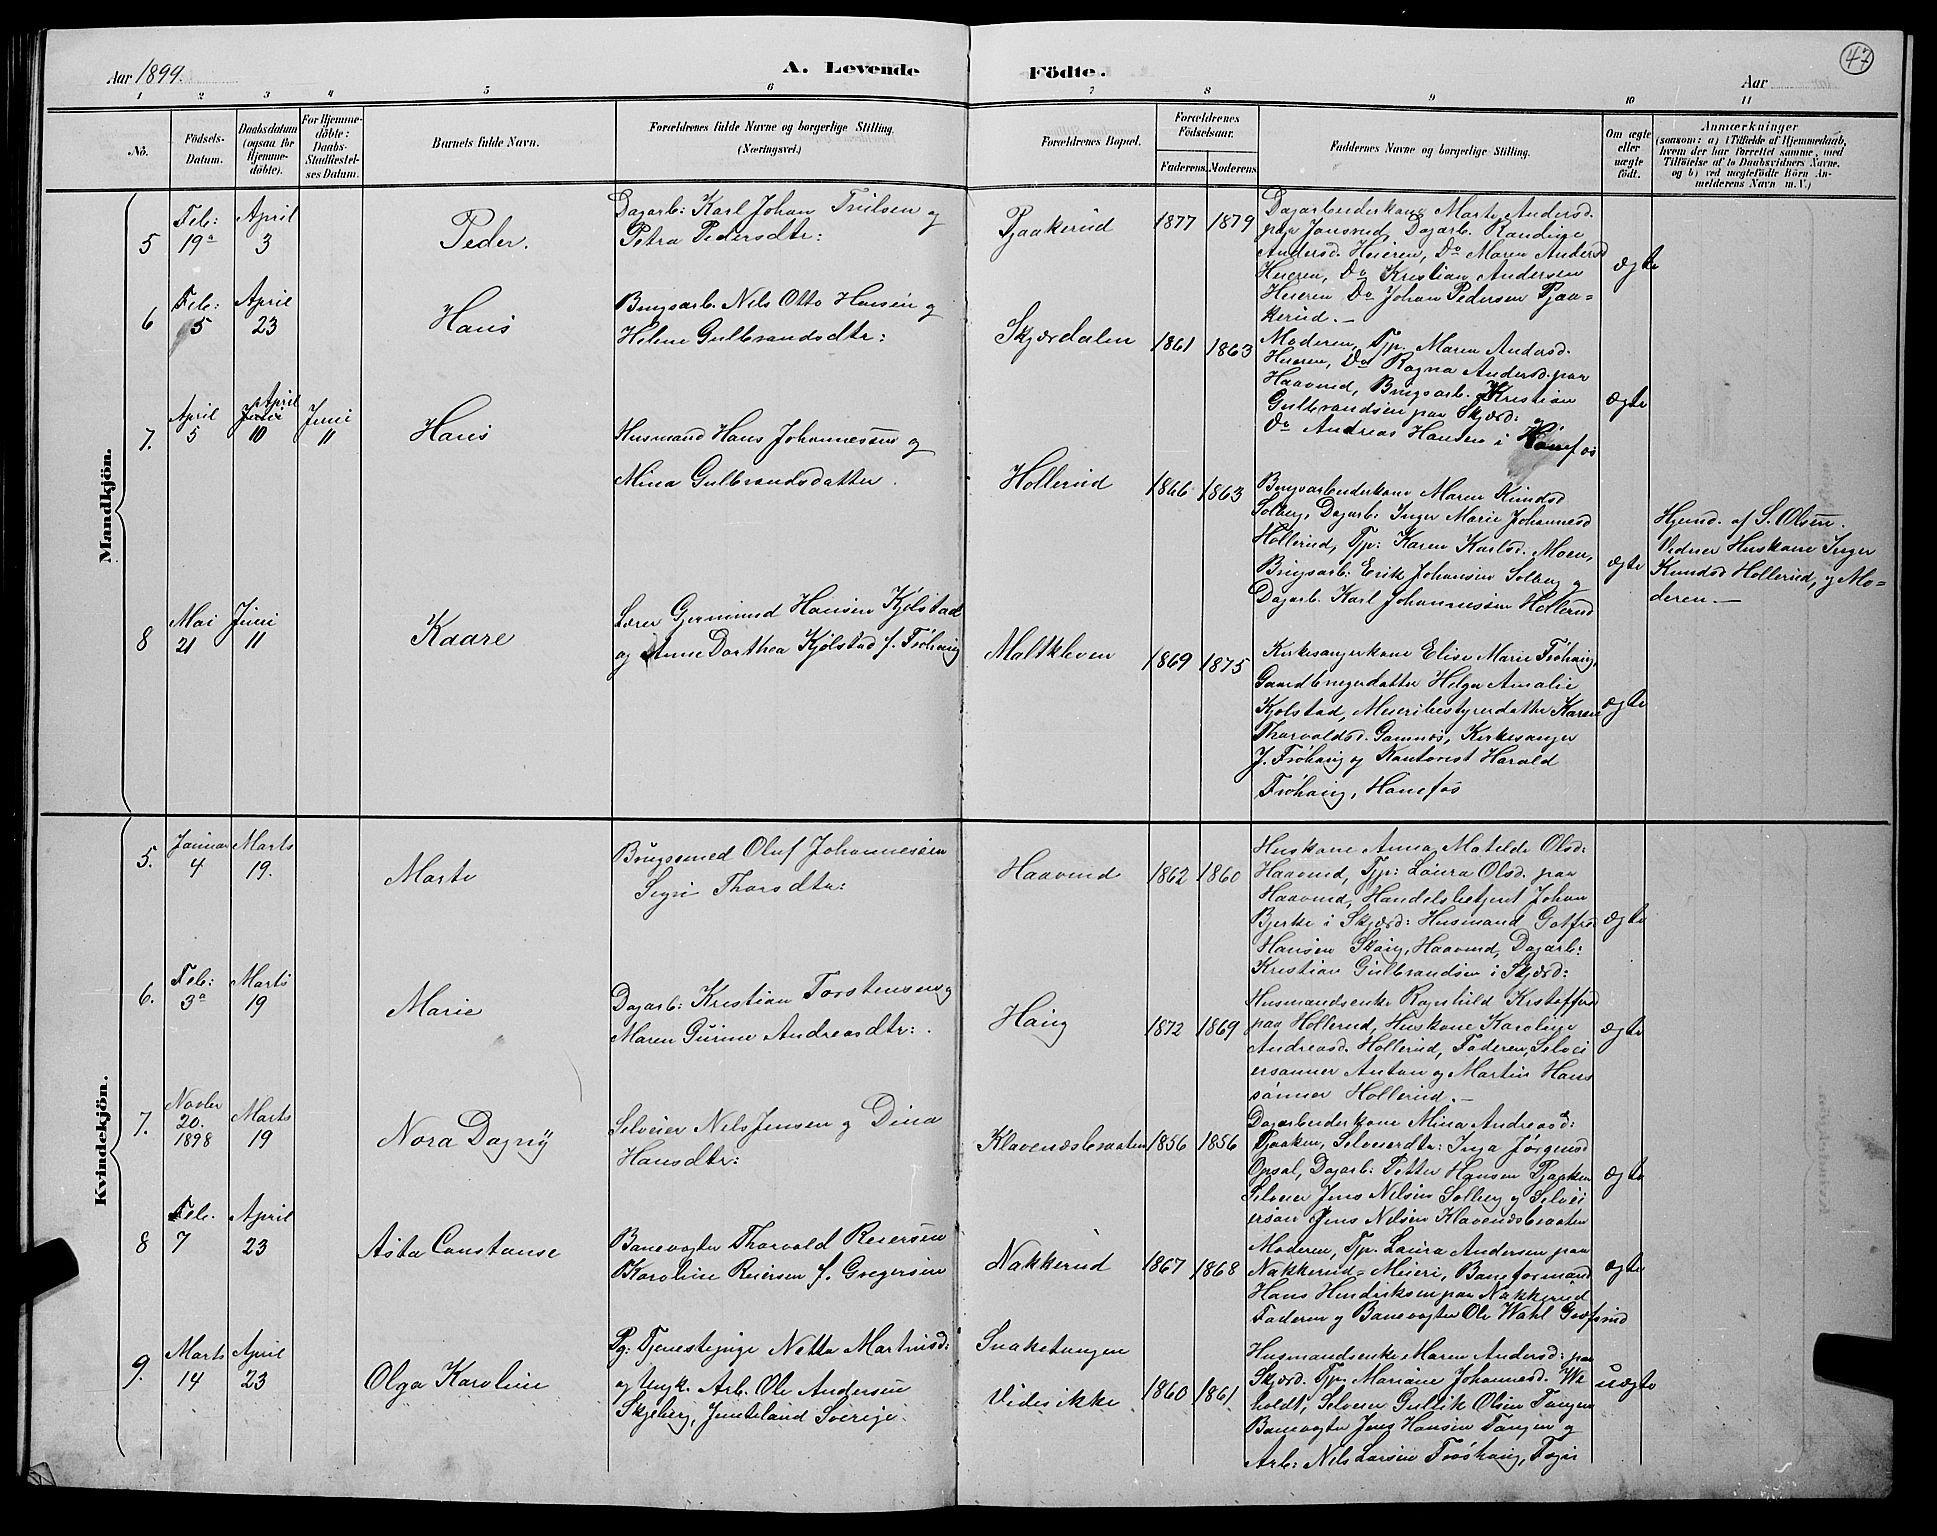 Aar 1899.
A. Levende
Födte.
Aar
47
1 2 3 4 5 6 7 8 9 10 11
Nô.
Födsels-
Datum.
Daabsdatum
(ogsaa for
Hjemme-
döbte).
For Hjemme-
döbte:
Daabs-
Stadfæstel-
ses Datum.
Barnets fulde Navn.
Forældrenes fulde Navne og borgerlige Stilling.
(Næringsvei.)
Forældrenes Bopæl.
Forældrenes
Födselsaar.
Faderens. Moderens.
Faddernes Navne og borgerlige Stilling.
Om ægte
eller
uægte
födt.
Anmærkninger
(saasom: a) i Tilfælde af Hjemmedaab,
hvem der har forrettet samme, med
Tilföielse af to Daabsvidners Navne,
og b) ved uægtefödte Börn An-
melderens Navn m. V.)
Mandkjön.
5
Feb:
19
April
3
Peder.
Dagarb: Karl Johan og
Petra Pedersdtr:
Pjaakerud
1877 1879
Dagarbeiderkone Marte Andersd.
paa Jonsrud, Dagarb. Randine
Andersd. Heieren, Do Maren Andersd
Heieren, Do Kristian Andersen
Heieren Do Johan Pedersen Pjaa-
kerud.
ægte
6
Feb:
5
April
23
Hans
Brugsarb. Nils Otto Hansen og
Helene Gulbrandsdtr:
Skjærdalen
1861 1863
Moderen, Tjp. Maren Andersd.
Heieren, Do Ragna Andersd. paa
Haavrud, Brugsarb. Kristian
Gulbrandsen paa Skjærd:
Do Andreas Hansen i Hønefos
ægte
7.
April
5
April
Juni
10
Juni
11
Hans
Husmand Hans Johannessen og
Mina Gulbrandsdatter.
Hollerud
1866 1863
Brugsarbeiderkone Maren Knudsd
Solberg, Dagarb: Inger Marie Johannesd
Hollerud, Tjp: Karen Karlsd. Moen,
Brugsarb: Erik Johansen Solberg og
Dagarb. Karl Johannessen Hollerud
ægte
Hjemd. af S. Olsen.
Vidner Huskone Inger
Knudsd Hollerud, og Mo-
deren.
8
Mai
21
Juni
11
Kaare
Lærer Gjermund Hansen Kjölstad
og Anne Dorthea Kjölstad f. Fröhaug
Maltkleven
1869 1875
Kirkesangerkone Elise Marie Fröhaug,
Gaardbrugerdatter Helga Amalie
Kjölstad, Meieribestyrerdatter Karen
Thorvaldsd. Gomnæs, Kirkesanger
J. Fröhaug og Kontorist Harald
Fröhaug, Hønefos
ægte
Kvindekjön.
5.
Januar
4
Marts
19.
Marte
Brugssmed Oluf Johannesen
Sigri Thorsdtr:
Haavrud
1862 1860
Huskone Anna Matilde Olsd:
Haavrud, Tjp: Laura Olsd. paa
Haavrud, Handelsbetjent Johan
Bjerke i Skjærd: Husmand Gotfred
Hansen Skoug, Haavrud, Dagarb:
Kristian Gulbrandsen i Skjærd:
ægte
6.
Feb:
3
Marts
19
Marie
Dagarb: Kristian Torstensen og
Maren Gurine Andreasdtr:
Haug
1872 1869
Husmandsenke Ragnhild Kristoffersd
paa Hollerud, Huskone Karoline
Andreasd. Hollerud, Faderen, Selvei
ersönner Anton og Martin Hans
sönner Hollerud.
ægte
7.
Novbr
20.
1898
Marts
19
Nora Dagny
Selveier Nils Jensen og Dina
Hansdtr:
Klavenæsbraaten
1856 1856
Dagarbeiderkone Mina Andreasd:
Pjaaken, Selveierdtr: Inga Jørgensd
Opsal, Dagarb: Petter Hansen Pjaaken
Selveier Jens Nilsen Solberg og Selvei
ersön Jens Nilsen Klavenæsbraaten
ægte
8
Feb.
7
April
23
Asta Constanse
Banevogter Thorvald Reiersen
Karoline Reiersen f. Gregersen
Nakkerud
1867 1868
Moderen, Tjp. Laura Andersen paa
Nakkerud-Meieri, Baneformand
Hans Hendriksen paa Nakkerud
Faderen og Banevogter Ole Wahl Græfsrud
ægte
9.
Marts
14
April
23
Olga Karoline
Pg: Tjenestepige Netta Martinsd:
og Ungk. Arb. Ole Andersen
Skjeberg, Jemteland Sverige.
Snaketangen
Vides ikke
1860 1861
Husmandsenke Maren Andersd: paa
Skjærd. Tjp. Mariane Johannesd. We
holdt, Selveier Gulbrik Olsen Tangen
Banevogter Jens Hansen Tangen og
Arb: Nils Larsen Fröshaug,
uægte